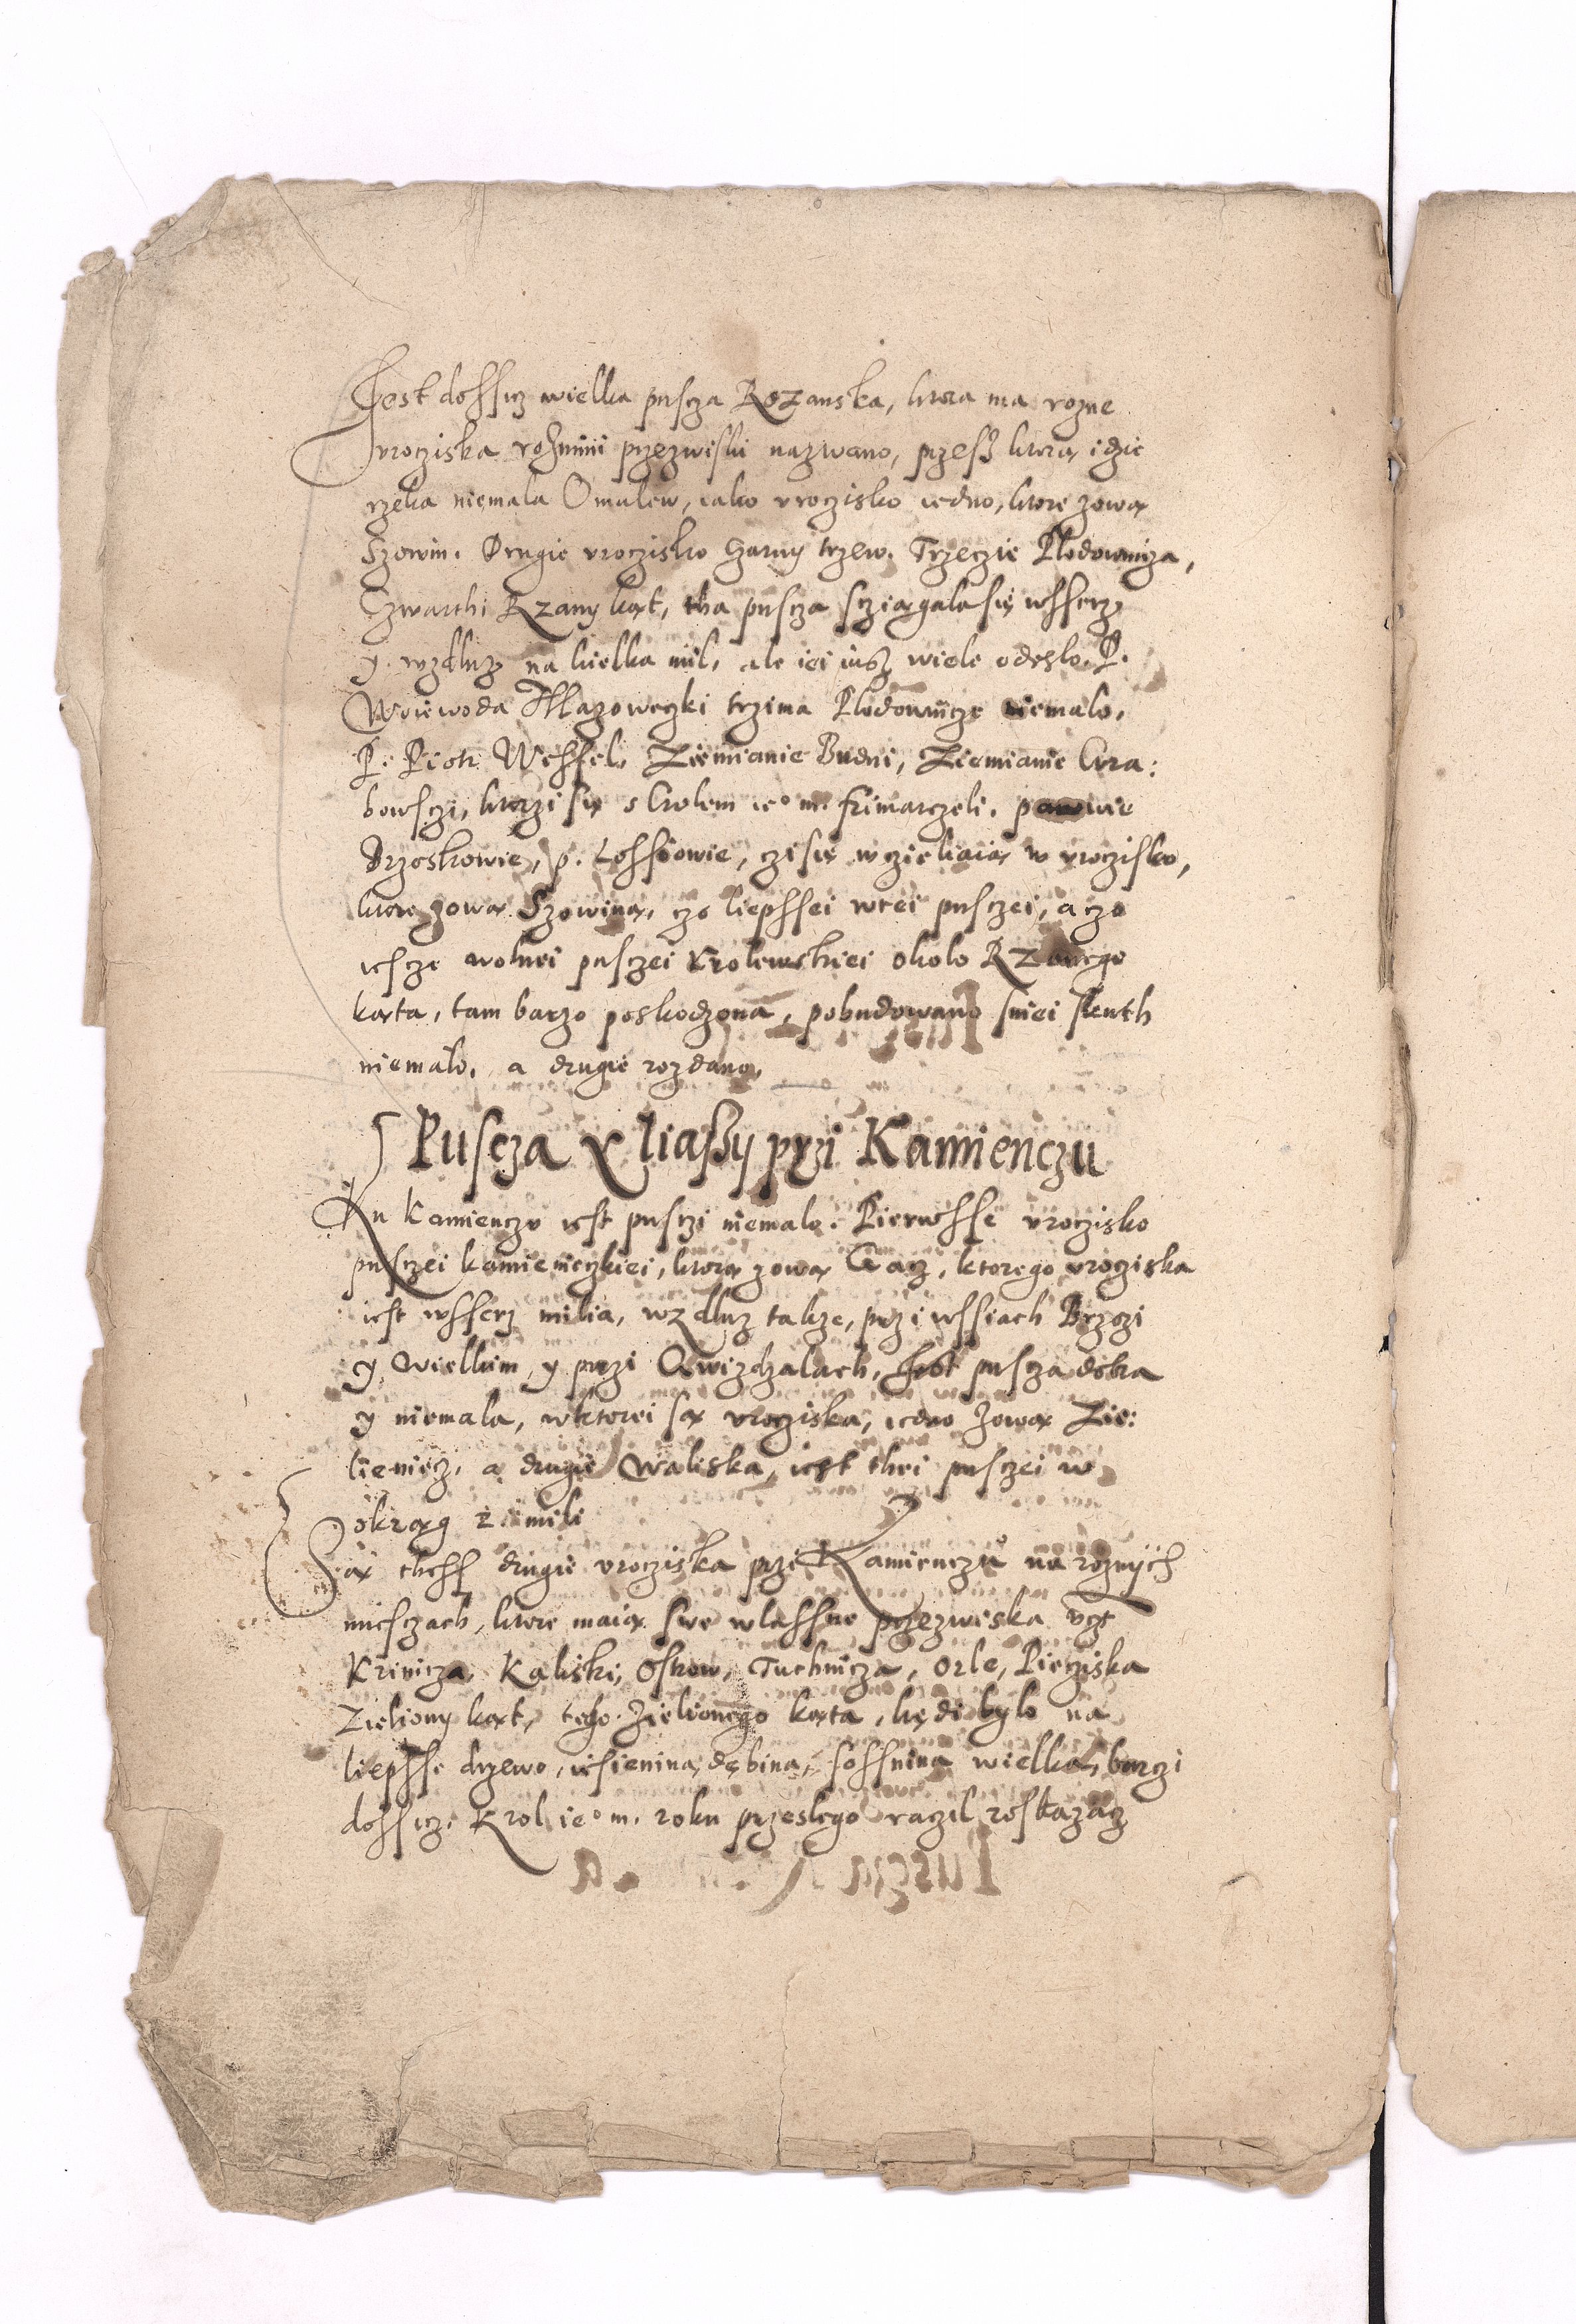 Jest dossicz wielka puscza Rozanska, ktora ma rozne
vrocziska roznimi przezwiski nazwano, przesz ktorą idzie
rzeka niemala Omulew, iako vroczisko iedno, ktore zową
Szowin. Drugie vroczisko Czarny trzew. Trzeczie Plodownicza,
Czwarthi Rzany kąt, tha puscza scziągala się wsserz
y wzdluz na kielka mil, ale iei iusz wiele odeszlo. P.
Woiewoda Mazoweczki trzima Plodownicze niemalo,
P. Piotr Wessel, Ziemianie Budni, Ziemianie Gra:
bowsczi, ktorzi się s Crolem ie° m. frimarczeli. panowie
Drzoskowie, p. Lossiowie, czi się wczieliaią w vroczisko,
ktore zową Szowiną, czo liepssei wtei pusczei, a czo
iescze wolnei pusczei Krolewskiei okolo Rzanego
kąta, tam barzo poskodzona, pobudowano sniei skuth
niemalo, a drugie rozdano,
Puscza y liassy przi Kamienczu
Ku Kamienczu iest pusczi niemalo. Pierwsse vroczisko
pusczei kamienieczkiei, ktorą zową Gacz, ktorego vrocziska
iest wsserz milia, wzdluz takze, przi wssiach Brzozi
y Wielkim, y przi Gwizdzalach, Jest puscza dobra
y niemala, wktorei są vrocziska, iedno zową Zie:
lieniecz, a drugie Waliska, iest thei pusczei w
okrąg z ii mili
Są thess drugie vrocziska przi Kamienczu na roznych
miesczach, ktore maią swe wlassne przezwiska vt
Krinicza, Kaliski, Ostrow, Tuchnicza, Orle, Piecziska
Zieliony kąt, tego Zielionego kąta, kędi bylo na
liepsse drzewo, iesienina, dębina, sossnina wielka, barczi
dossicz. Krol ie° m. roku przeslego raczil roskazacz